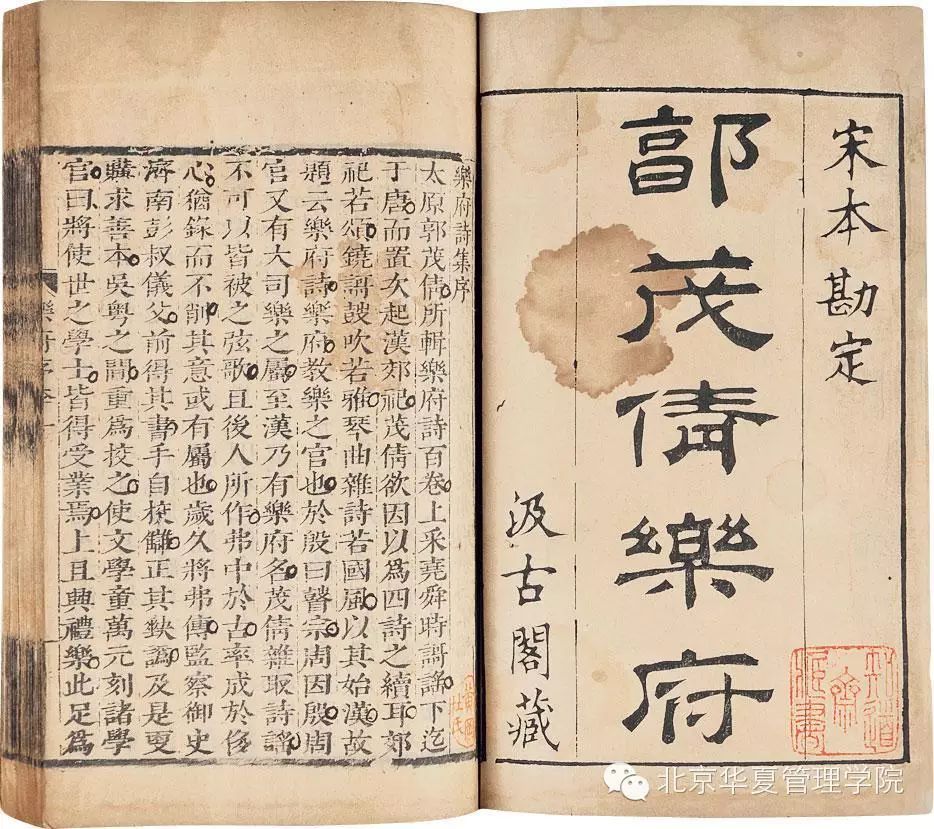 宋本勘定
郭茂倩樂府
汲古閣藏
樂府詩集序
太原郭茂倩所輯樂府詩百卷上采堯舜時謌謡下迄
于唐而置次起漢郊祀茂倩欲因以爲四詩之續耳郊
祀若頌鐃謌鼓吹若雅琴曲雜詩若國風以其始漢故
題云樂府詩樂府教樂之官也於殷曰瞽宗周因殷周
官又有大司樂之屬至漢乃有樂府名茂倩雜取詩謡
不可以皆被之弦歌且後人所作弗中於古率成於侈
心猶錄而不削其意或有屬也歲久將弗傳監察御史
濟南彭叔儀父前得其書手自校讎正其缺譌及是更
購求善本吳粤之間重爲挍之使文學童萬元刻諸學
官曰將使世之學士皆得受業焉上且典禮樂此足爲
北京华夏管理学院